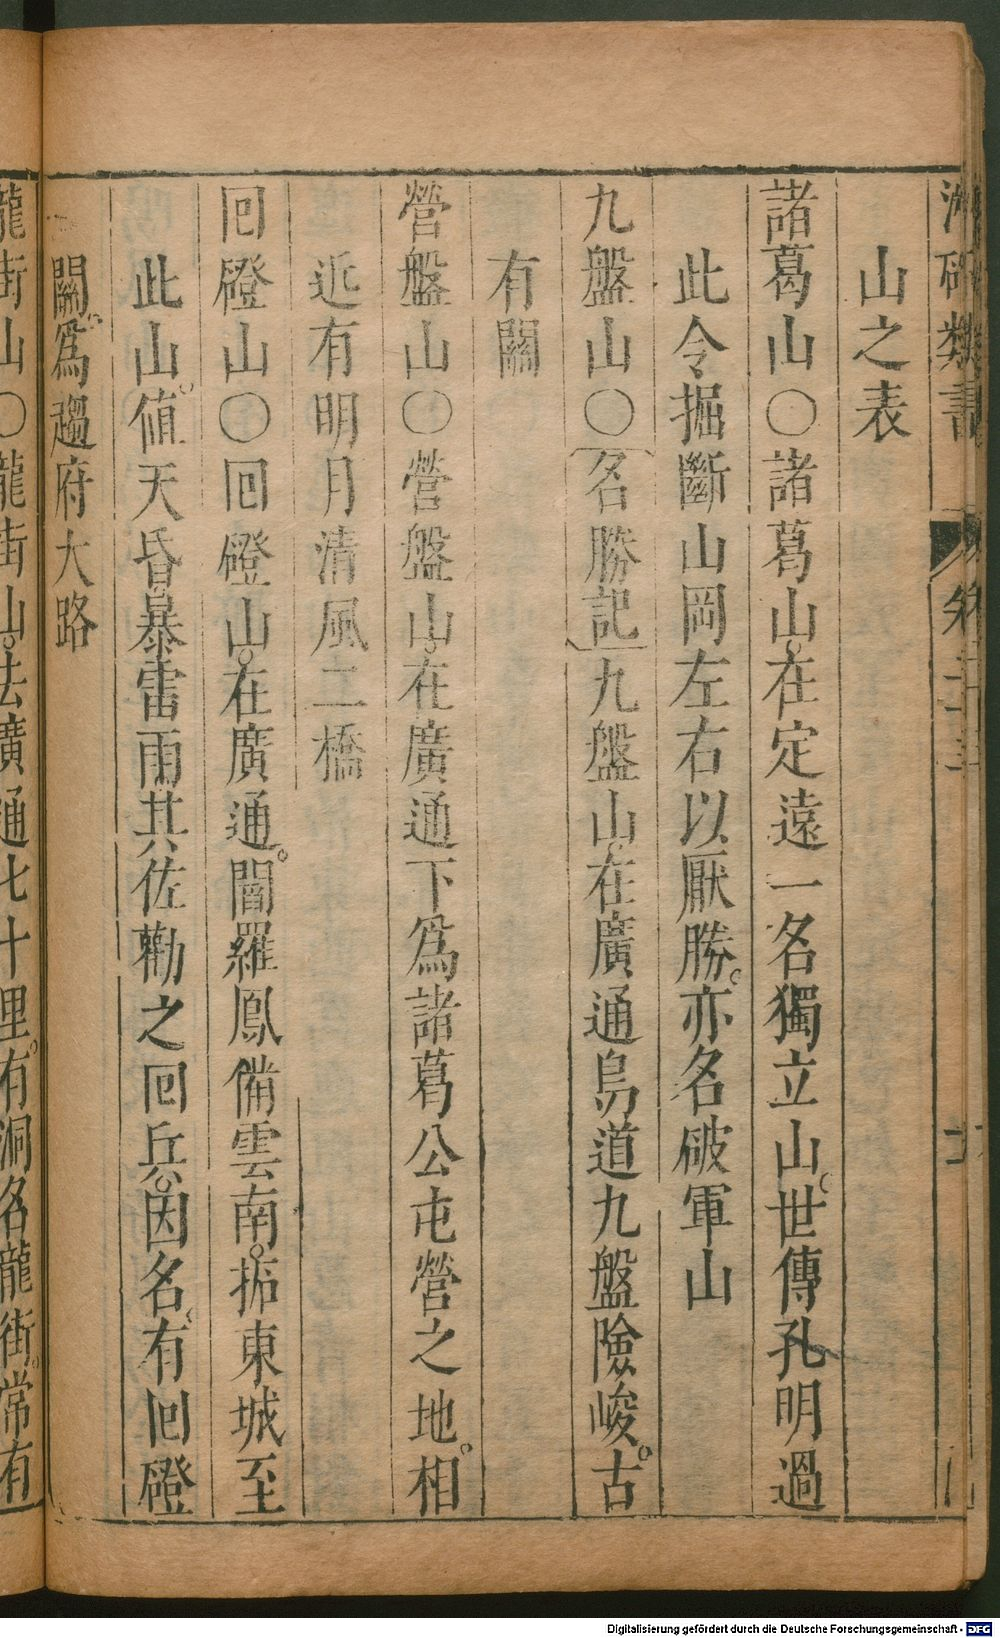 山之表
諸葛山○諸葛山在定遠一名獨立山世傳孔明過
此令掘斷山岡左右以厭勝亦名破軍山
九盤山○名勝記九盤山在廣通鳥道九盤險峻古
有關
營盤山○營盤山在廣通下為諸葛公屯營之地相
近有明月清風二橋
回磴山○回磴山在廣通閣羅鳳備雲南拓東城至
此山值天昏暴雷雨其佐勸之回兵因名有回磴
關為趨府大路
龍街山○龍街山去廣通七十里有洞名龍街常有
Digitalisierung gefördert durch die Deutsche Forschungsgemeinschaft - DFG